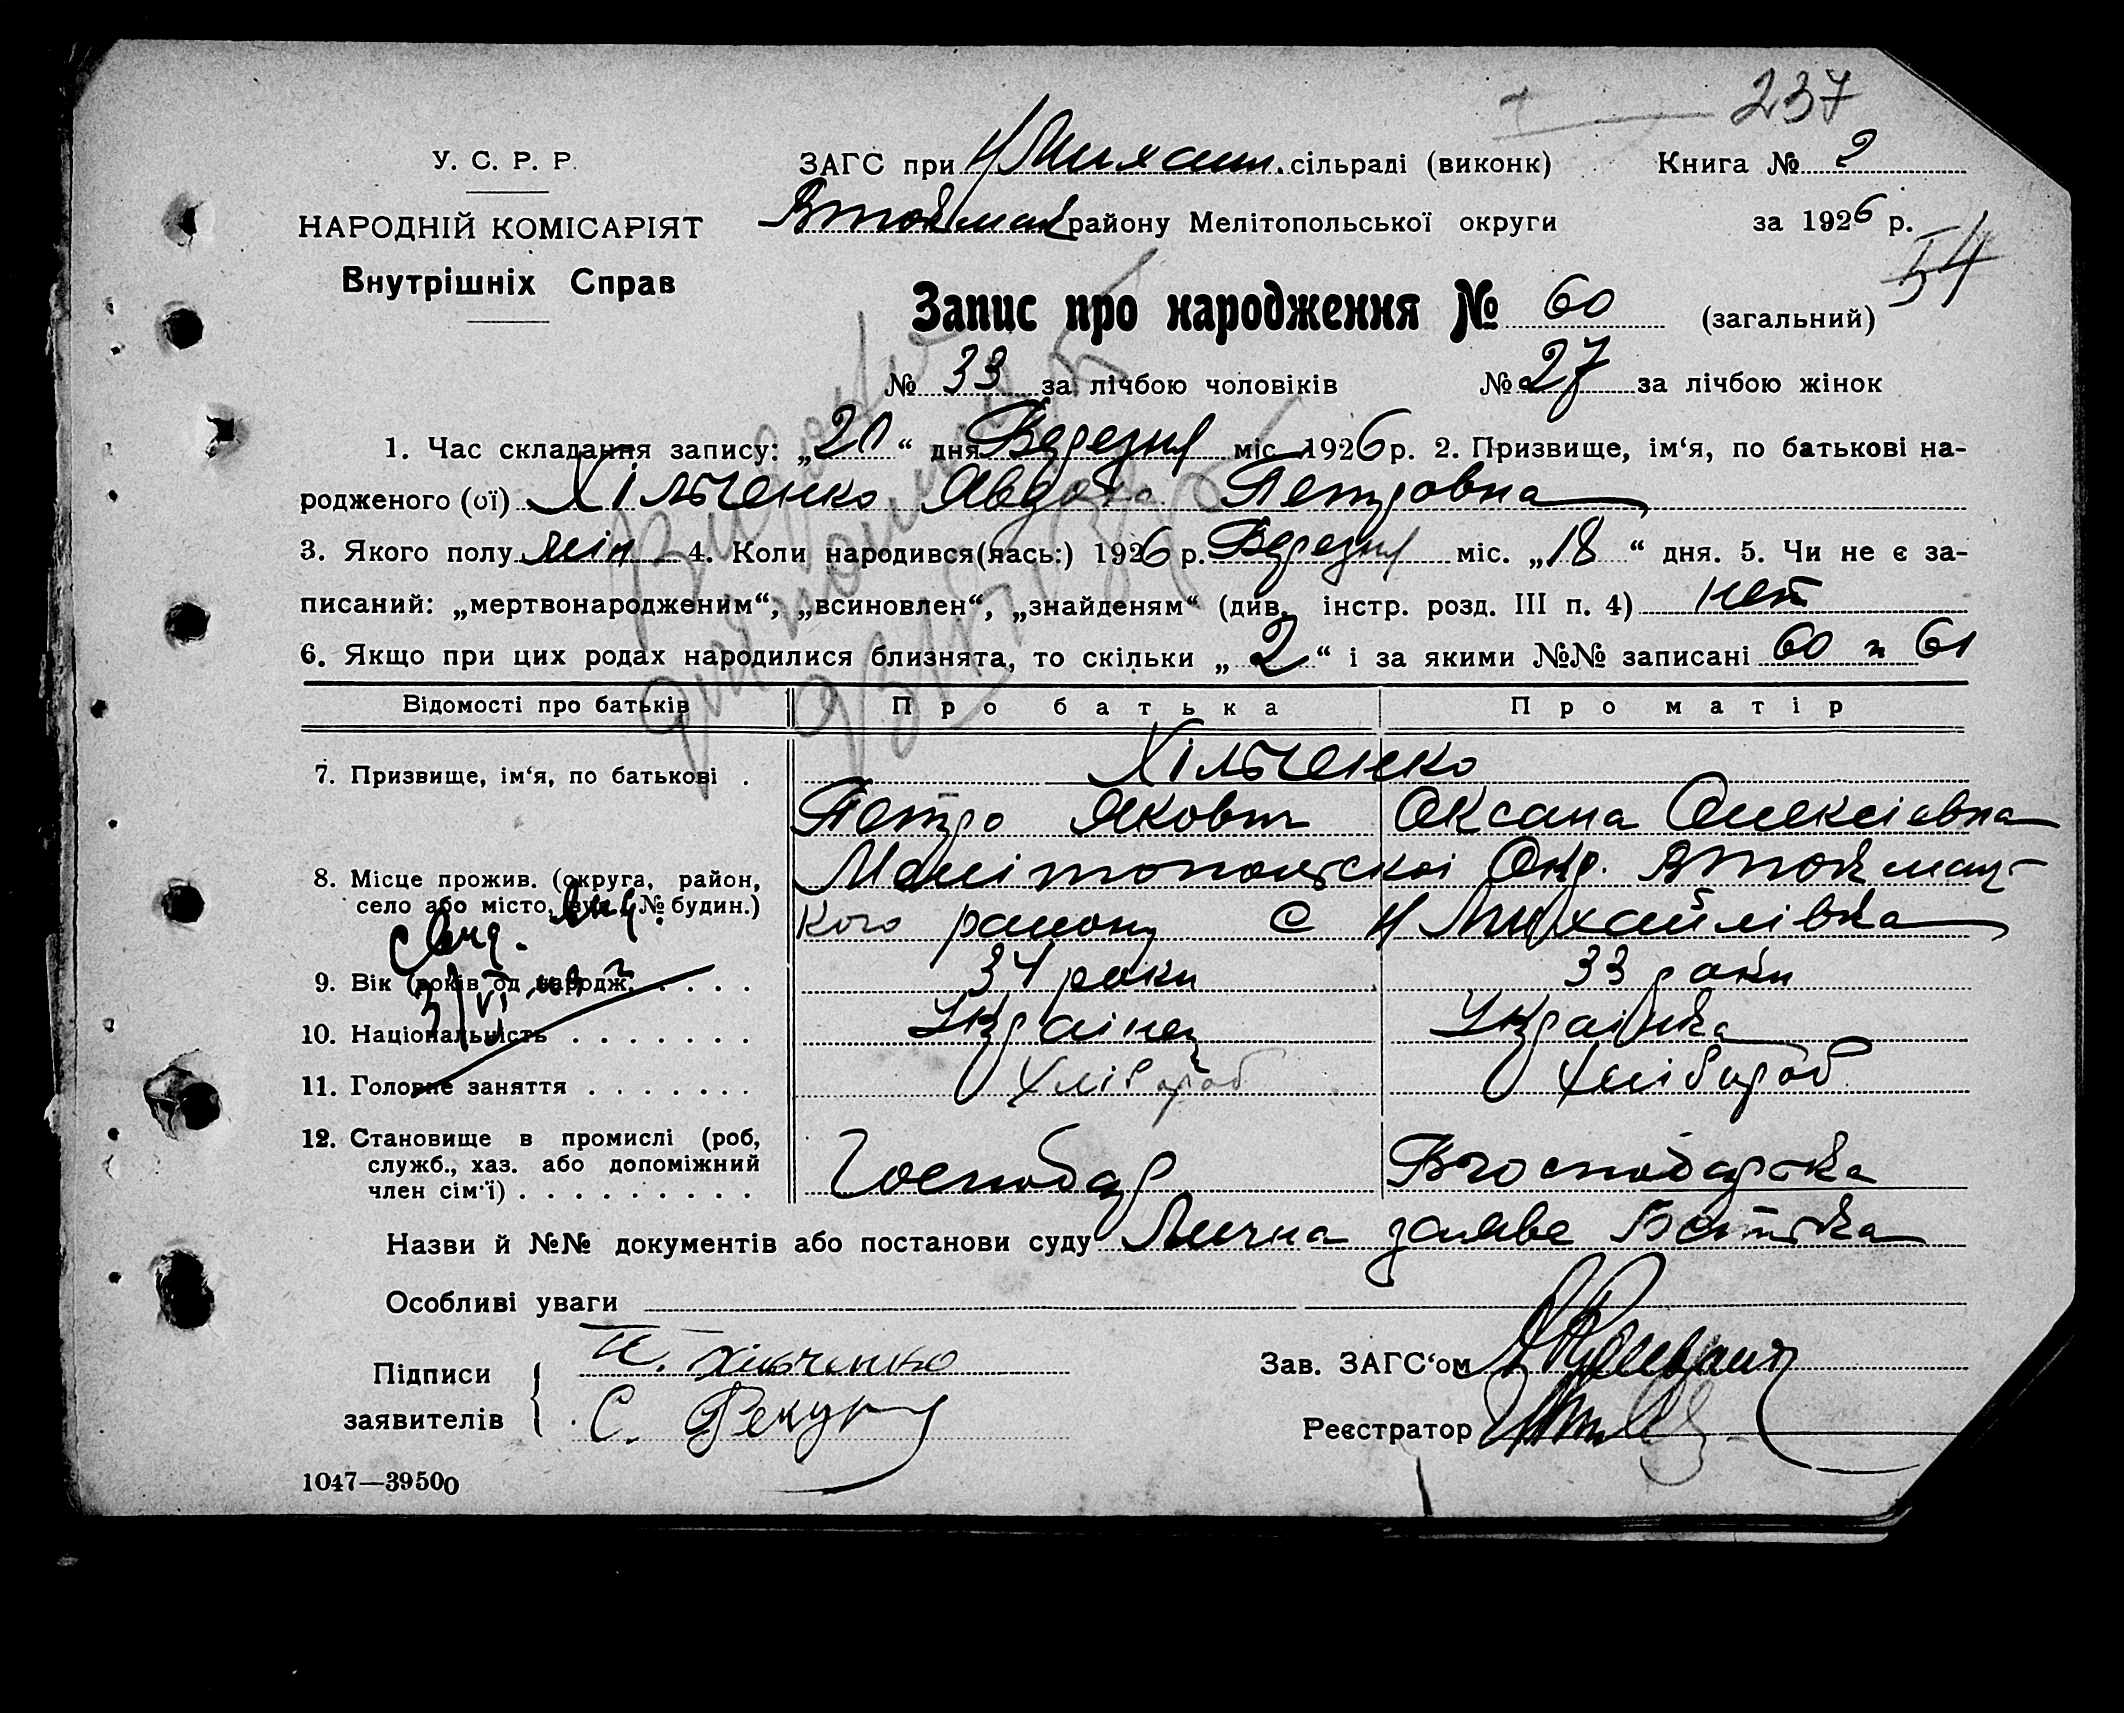 237
У. С. Р. Р.
ЗАГС при Н Михайл. сільраді (виконк) Книга № 2
НАРОДНІЙ КОМІСАРІЯТ
Внутрішніх Справ
В токмак району Мелітопольської округи за 1926 р.
54
Запис про народження № 60 (загальний)
№ 33 за лічбою чоловіків № 27 за лічбою жінок
1. Час складання запису: „20“ дня Березня міс 1926 р. 2. Призвище, ім‘я, по батькові на-
родженого (ої) Хільченко Явдоха Петровна
3. Якого полу жін 4. Коли народився(лась:) 1926 р. Березня міс. „18“ дня. 5. Чи не є за-
писаний: „мертвонародженим“, „всиновлен“, „знайденям“ (див. інстр. розд. III п. 4) нет
6. Якщо при цих родах народилися близнята, то скільки „2“ і за якими №№ записані 60 и 61
Відомості про батьків Про батька Про матір
7. Призвище, ім‘я, по батькові . Хільченко
Петро Якович Оксана Олексіавна
8. Місце прожив. (округа, район, Мелітопольскоі Окр. Втокмац-
село або місто, вул. № будин.) кого району с Н Михайлівка
9. Вік (років од народж. . . . . 34 роки 33 роки
10. Національність . . . . . . . Українец Українка
11. Головне заняття . . . . . . . Хлібороб Хлібороб
12. Становище в промислі (роб,
служб., хаз. або допоміжний
член сім‘ї) . . . . . . . . . Господар Вгосподарька
Назви й №№ документів або постанови суду Лична заява Батька
Особливі уваги
Підписи
заявителів
П. Хільченко
С. Рекун
Зав. ЗАГС‘ом
Реєстратор
1047—39500